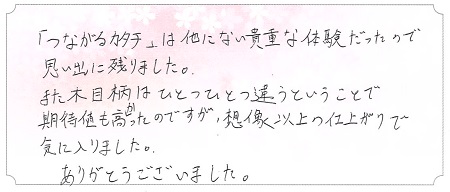 「つながるカタチ」は他にない貴重な体験だったので
思い出に残りました。
また木目柄はひとつひとつ違うということで
期待値も高かったのですが、想像以上の仕上がりで
気に入りました。
ありがとうございました。